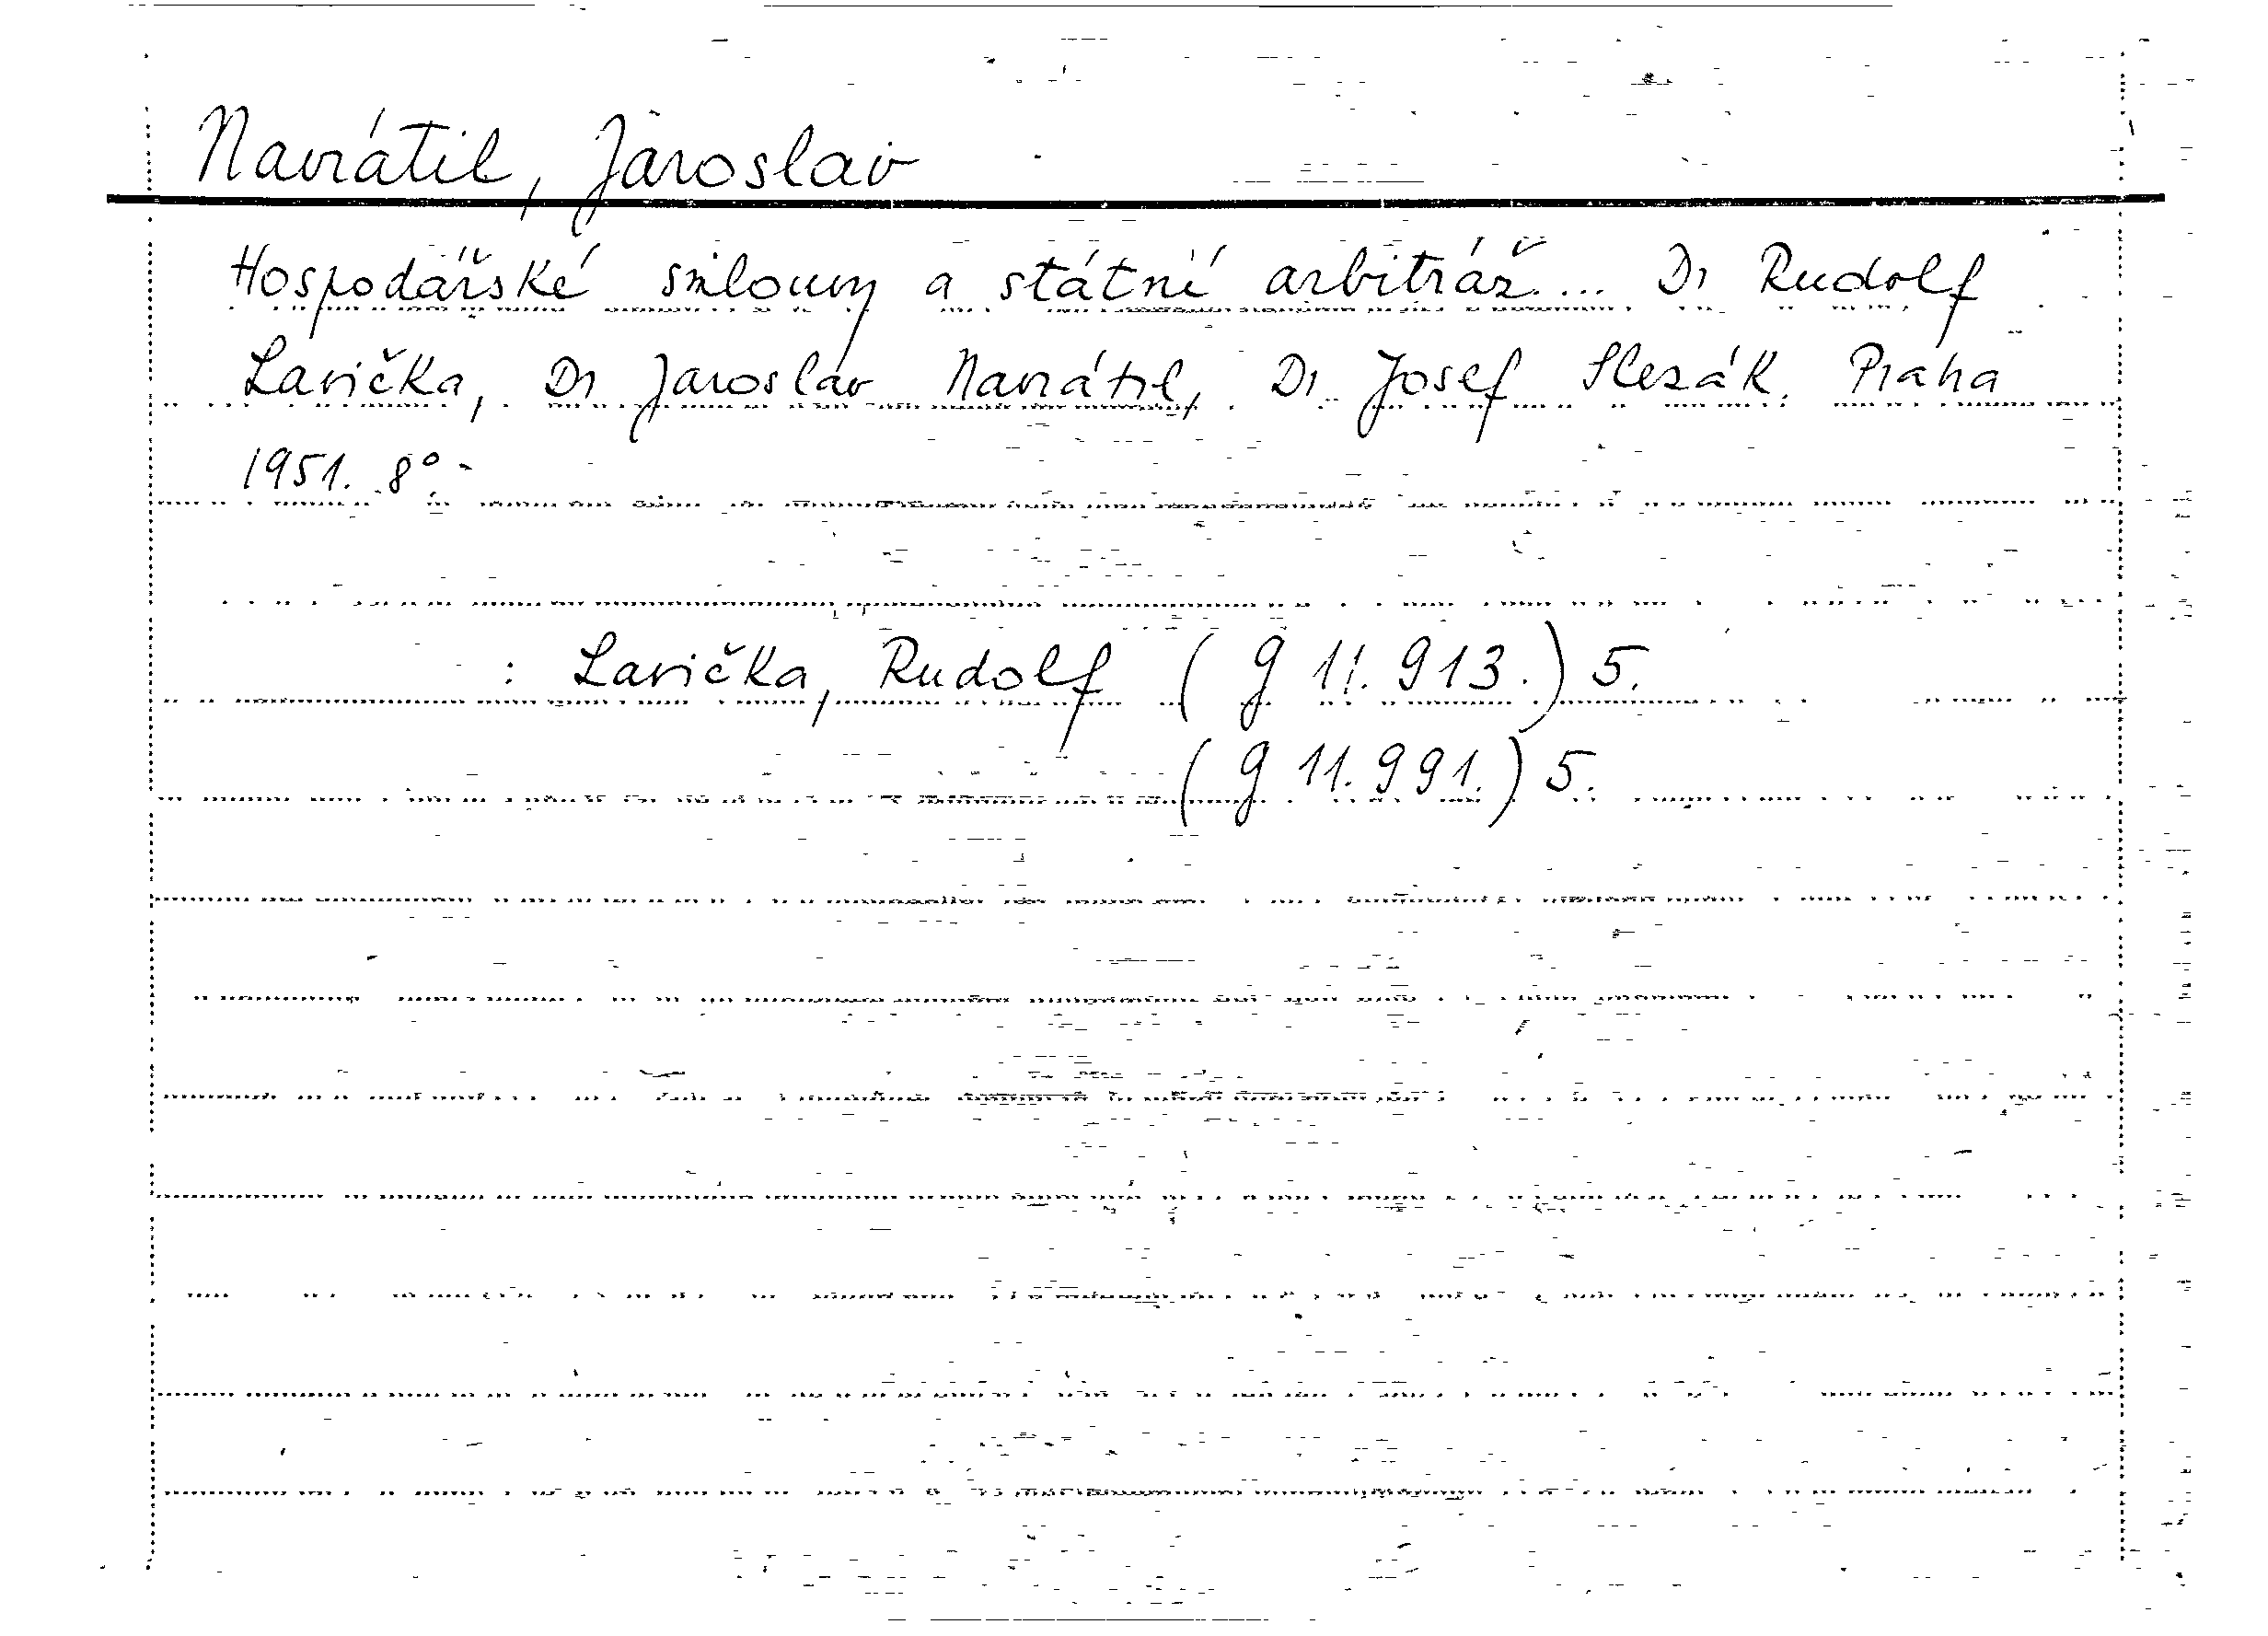 Navrátil, Jaroslav
Hospodářské smlouvy a státní arbitráž... Dr Rudolf
Lavička, Dr Jaroslav Navrátil, Dr Josef Slezák. Praha
1951. 8°.-
: Lavička, Rudolf (g 11.913.) 5.
(g 11.991.) 5.